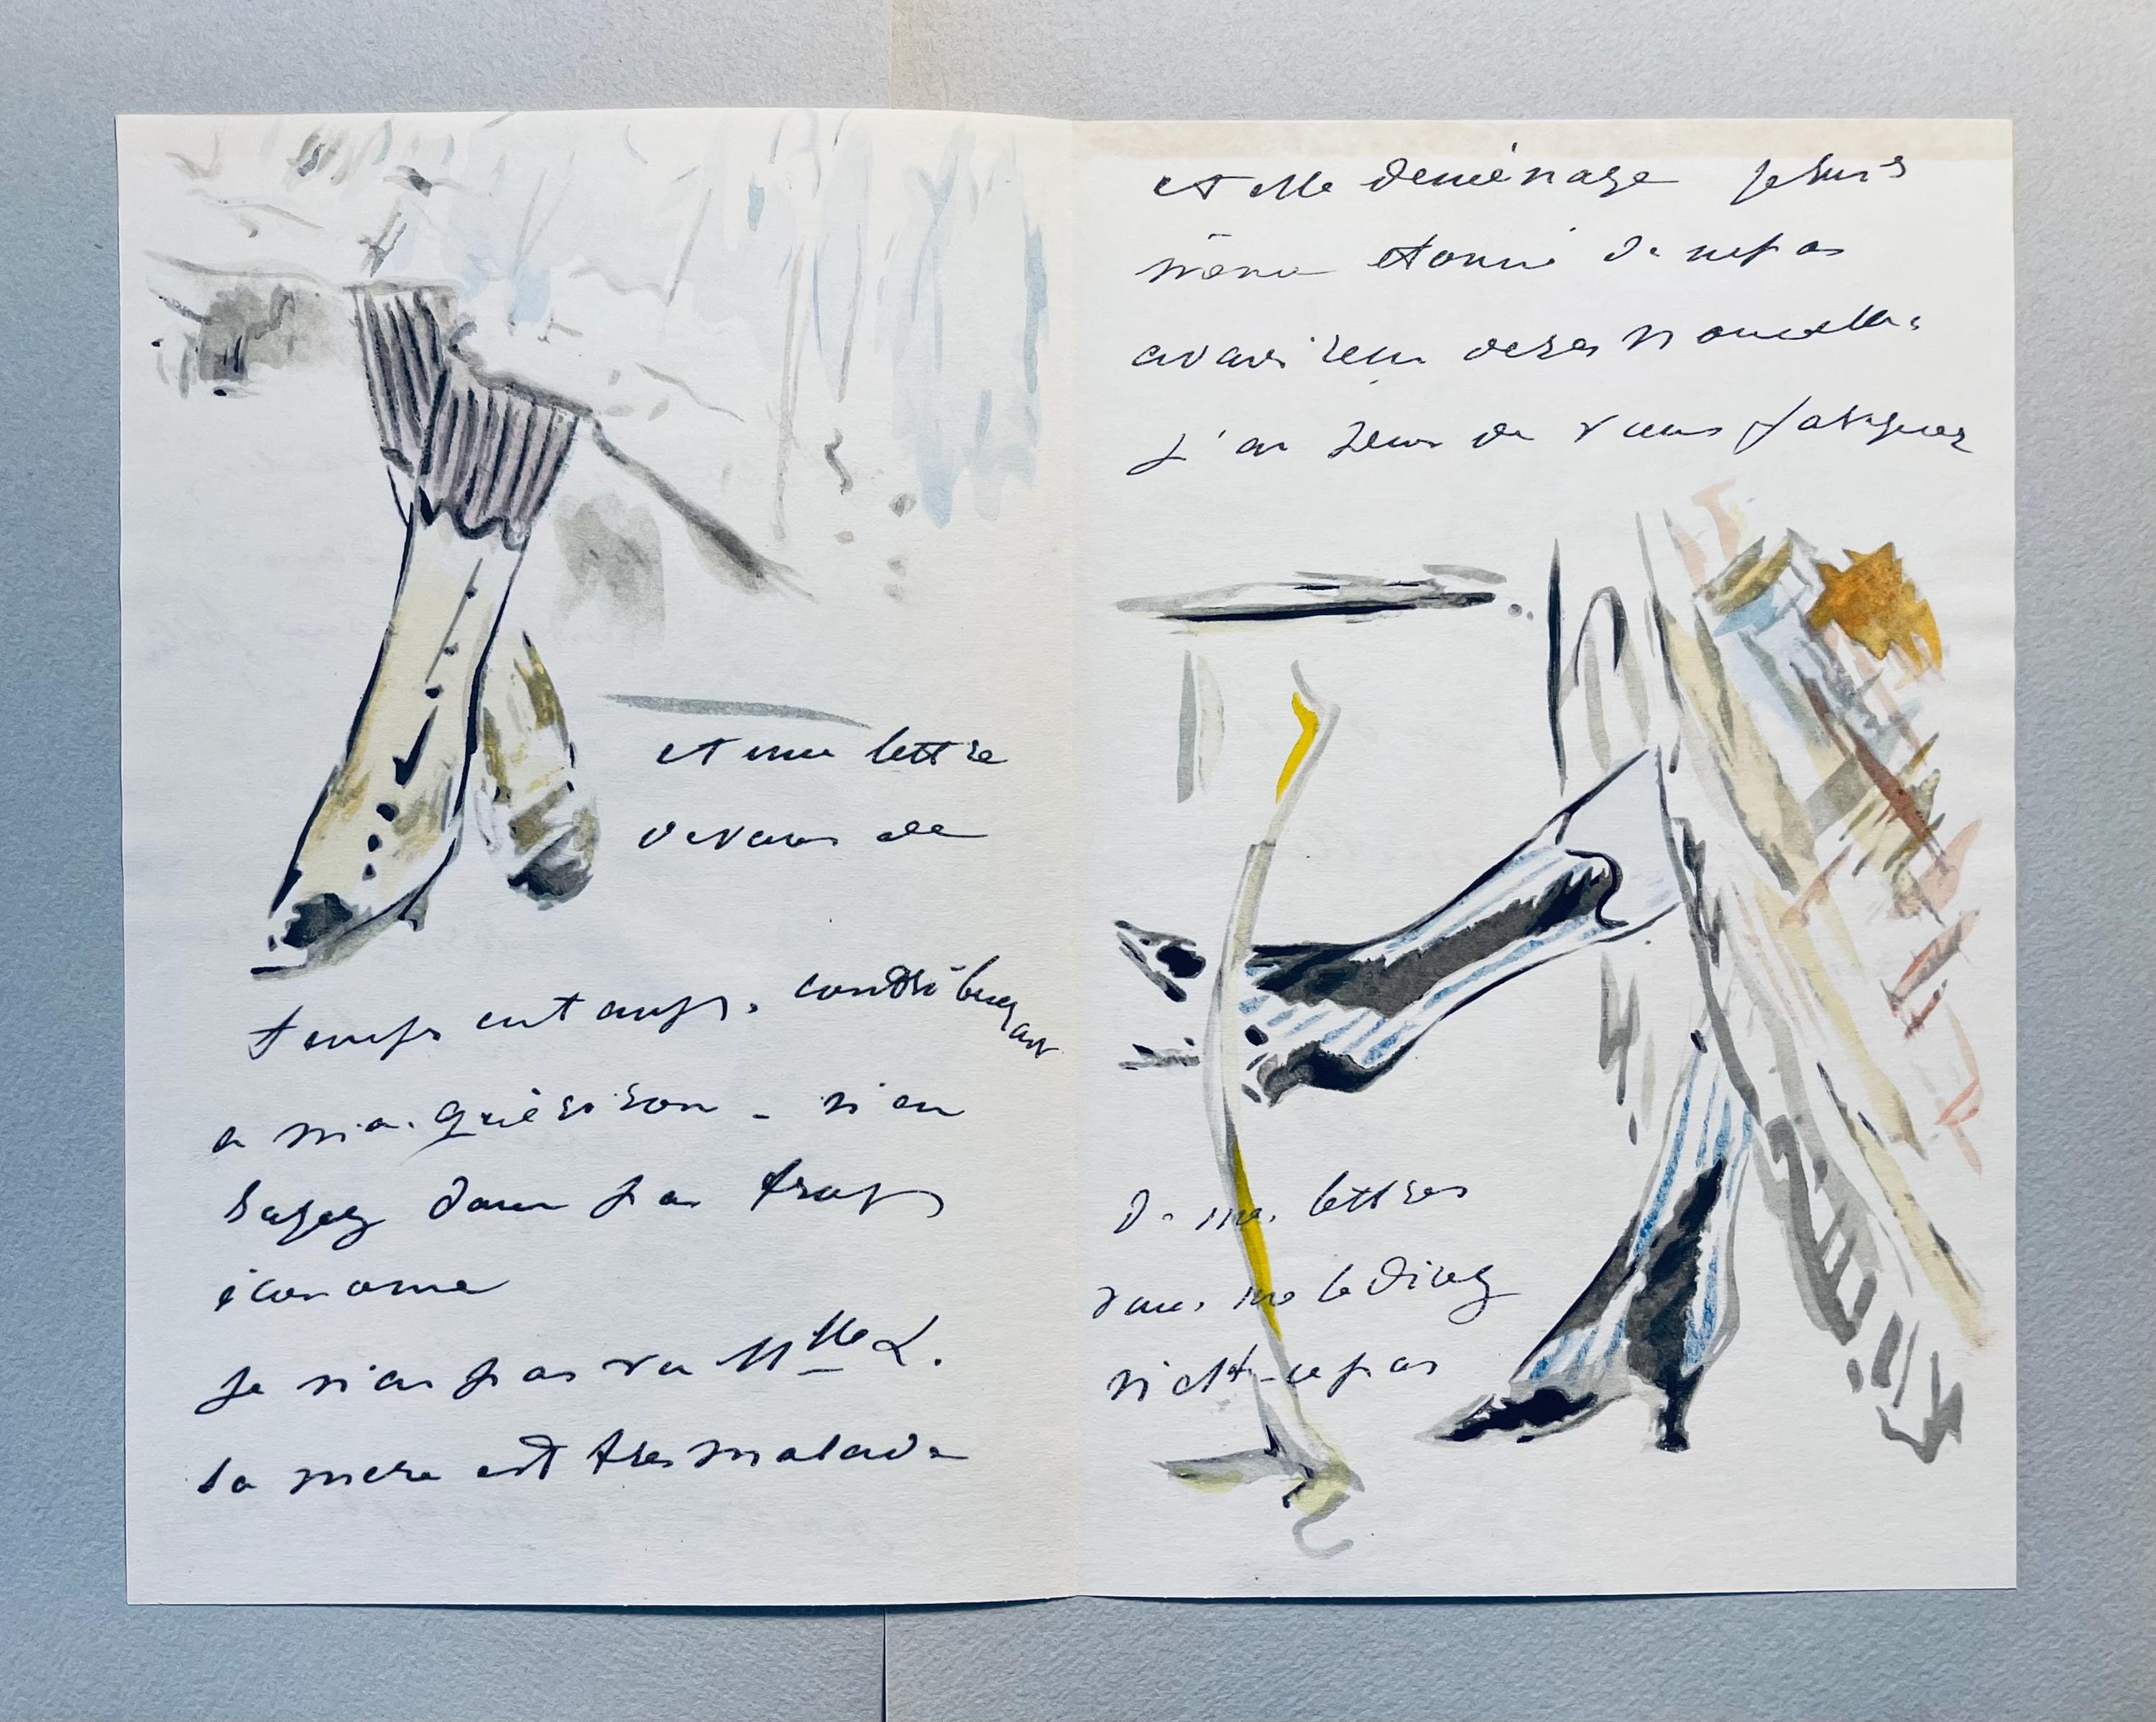 et une lettre
de vous de
temps en temps, contribuerait
a ma guérison - n'en
soyez donc pas trop
économe
je n'ai pas vu Mlle L.
sa mere est tres malade
et elle déménage je suis
même étonné de ne pas
avoir reçu de ses nouvelles
j'ai peur de vous fatiguer
de mes lettres
vous me le direz
n'est-ce pas